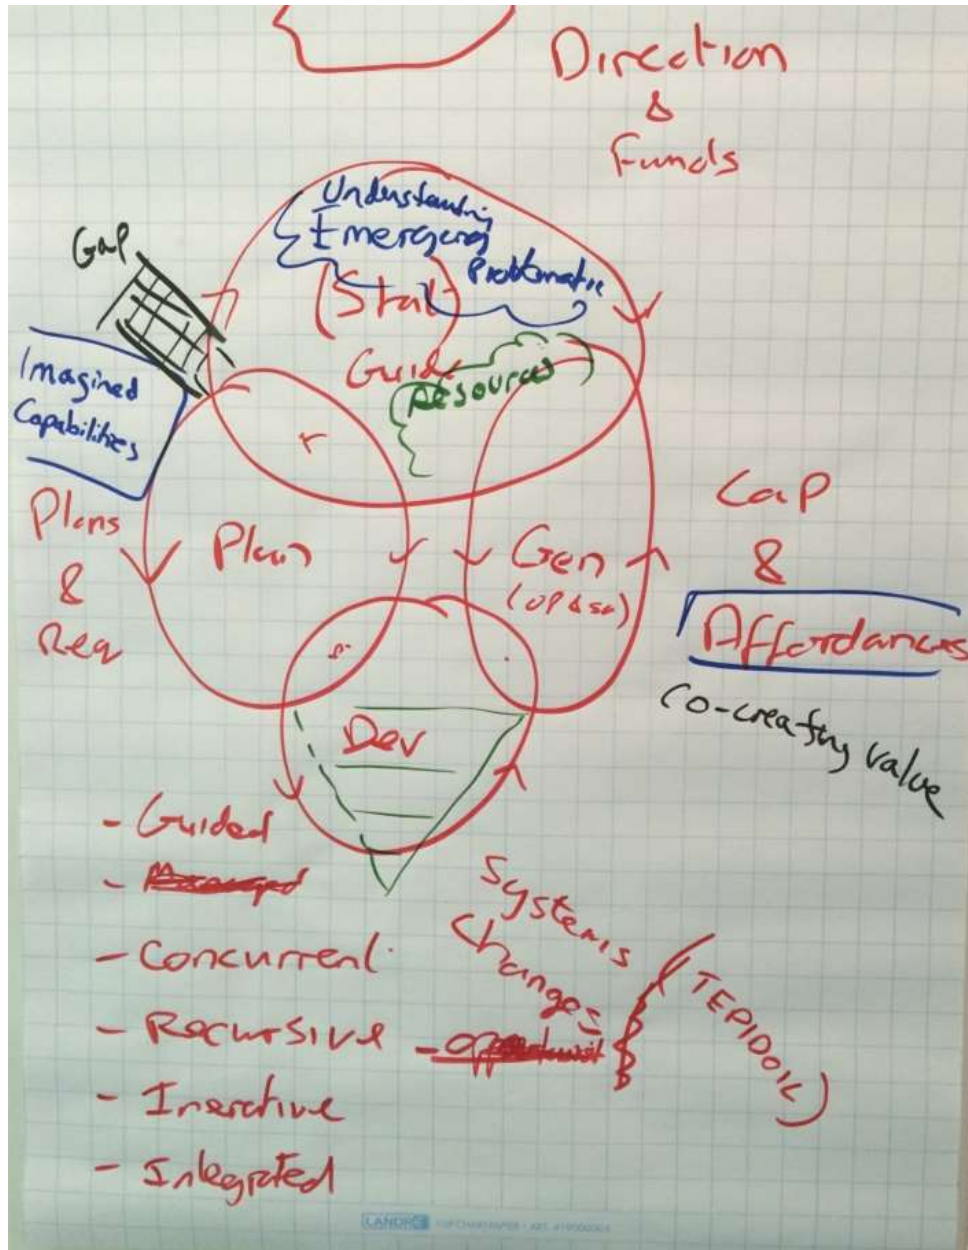 Direction
&
Funds
Understanding
Emerging
Problematic
Gap
(Strat)
Guide
(Resources)
Imagined
Capabilities
r
Plans
&
Req
Plan
Gen
Cap
&
Affordances
Co-creating value
Dev
- Guided
- Concurrent
- Recursive
- Inerative
- Integrated
Systems
Changes
(TEPIDOIL)
LANDRÉ